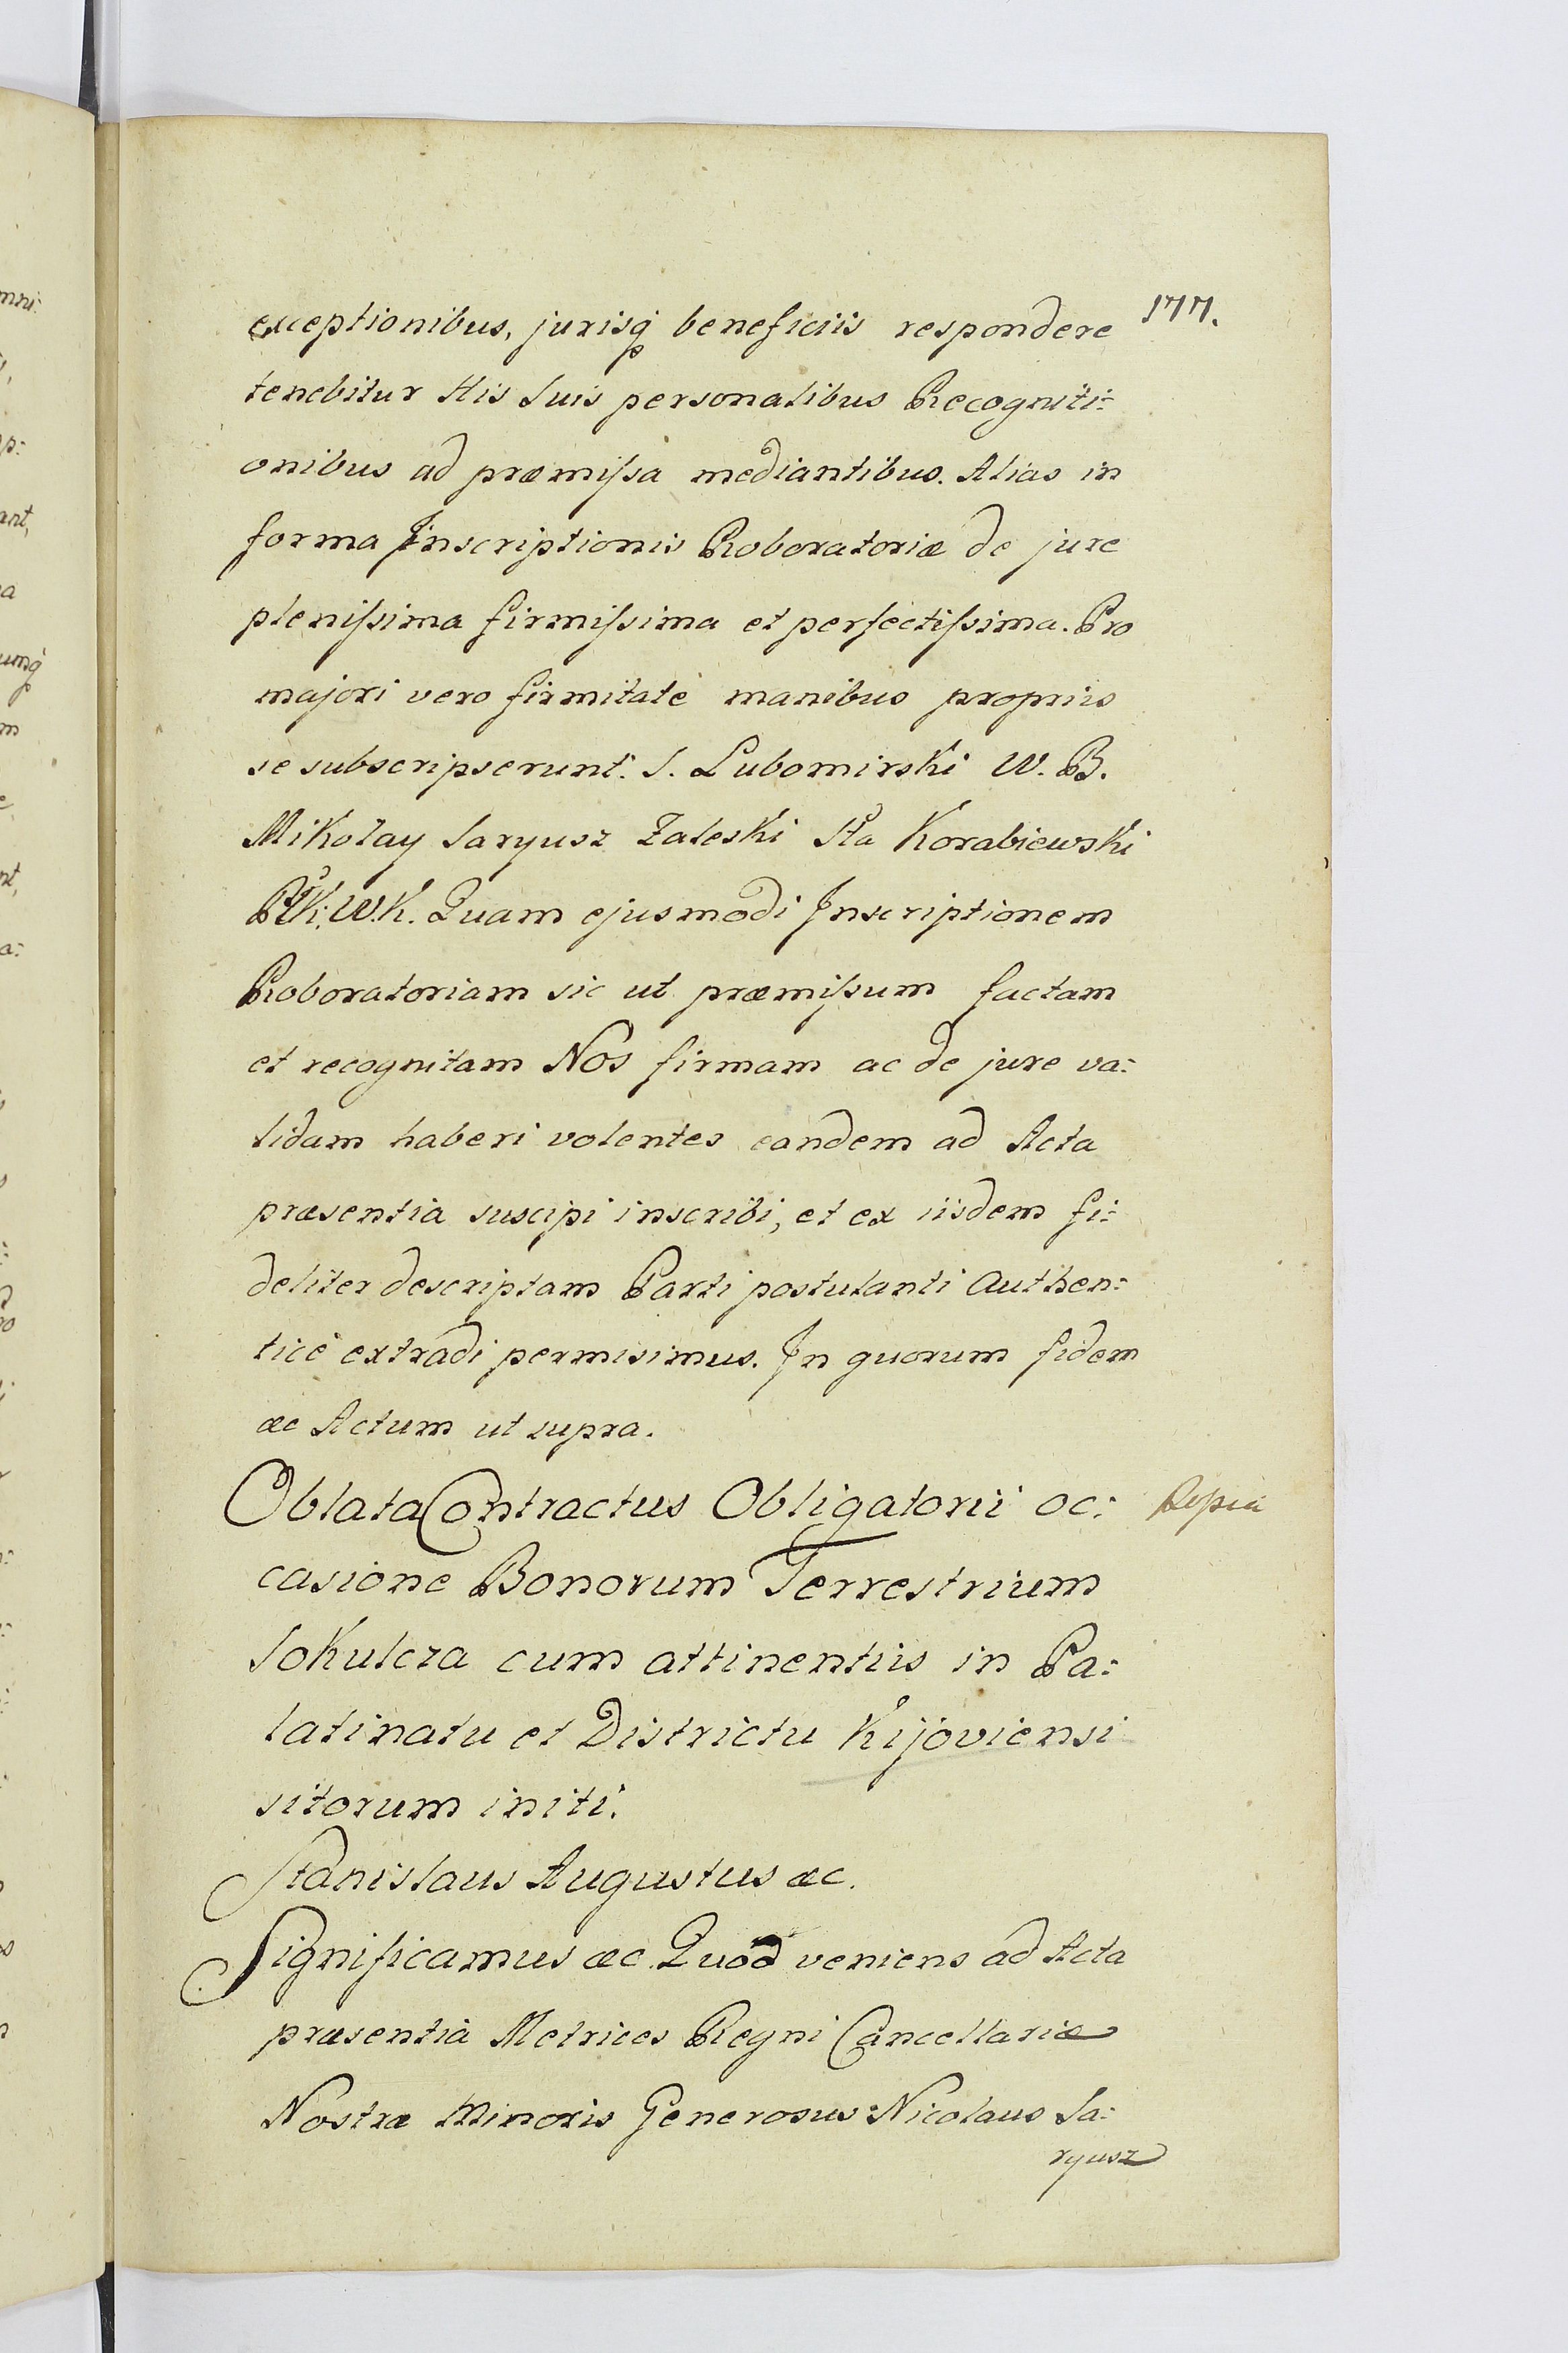 177.
exceptionibus, jurisq beneficiis respondere
tenebitur His Suis personalibus Recogniti:
onibus ad præmiſsa mediantibus. Alias in
forma Inscriptionis Roboratoriæ de jure
pleniſsima firmiſsima et perfectiſsima. Pro
majori vero firmitate manibus propriis
se subscripserunt: S. Lubomirski W. B.
Mikołay Saryusz Zaleski Sta Korabiewski
W.K. Quam ejusmodi Inscriptionem
Roboratoriam sic ut præmiſsum factam
et recognitam Nos firmam ac de jure va:
lidam haberi volentes eandem ad Acta
præsentia suscipi inscribi, et ex iisdem fi:
deliter descriptam Parti postulanti Authen:
ticè extradi permisimus. In quorum fidem
æc Actum ut supra.
Oblata Contractus Obligatorii oc:
casione Bonorum Terrestrium
Sokulcza cum attinentiis in Pa:
latinatu et Districtu Kijoviensi
sitorum initi.
Stanislaus Augustus æc.
Significamus æc. Quod veniens ad Acta
præsentia Metrices Regni Cancellariæ
Nostræ Minoris Generosus Nicolaus Sa:
ryusz